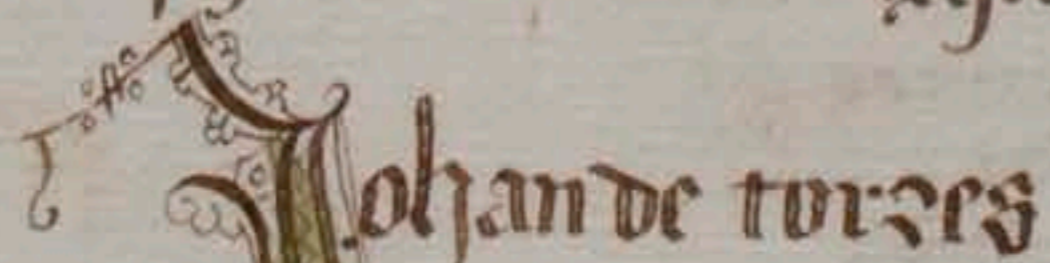 Johan de torres